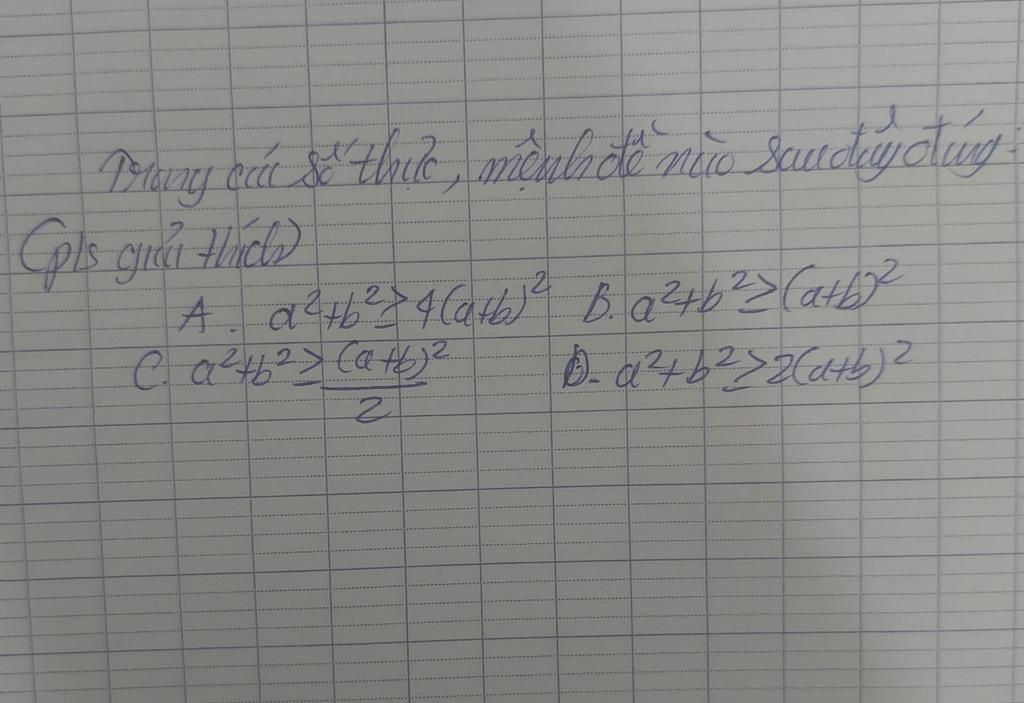 Trong các số thực, mệnh đề nào sau đây đúng:
(pls giải thích)
A. a²+b² ≥ 4(a+b)² B. a²+b² ≥ (a+b)²
C. a²+b² ≥ (a+b)²/2 D. a²+b² ≥ 2(a+b)²